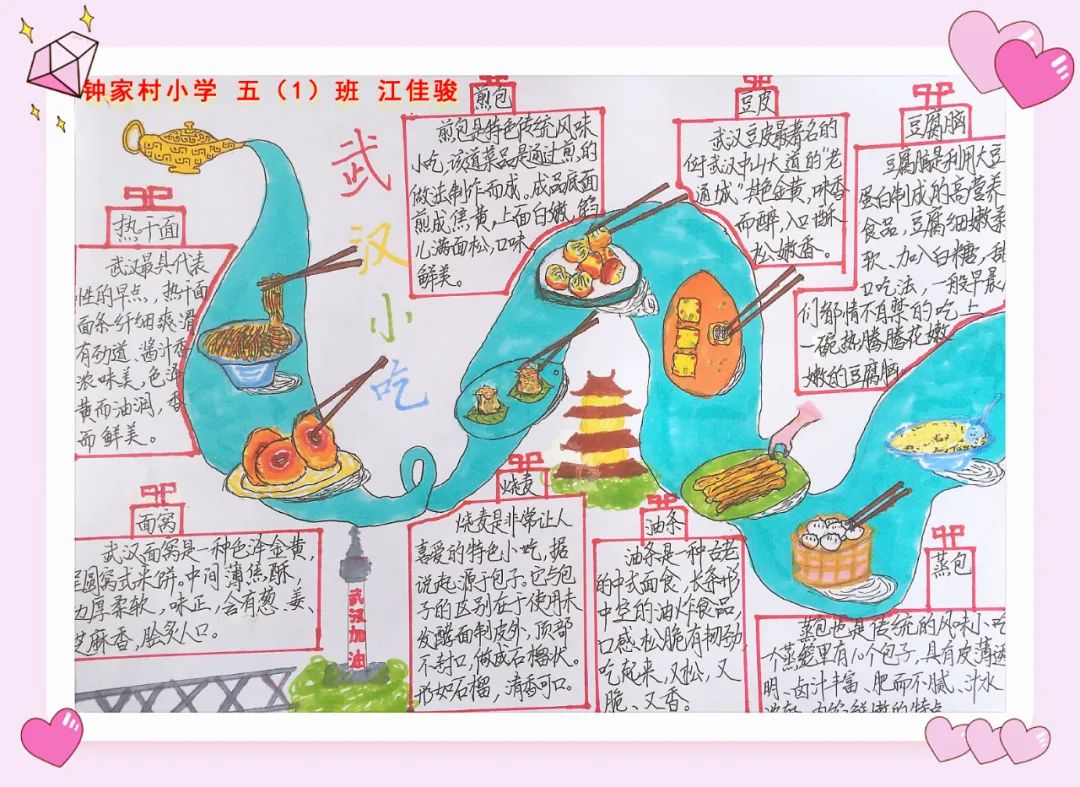 钟家村小学 五（1）班 江佳骏
武
汉
小
吃
热干面
武汉最具代表
性的早点，热干面
面条纤细爽滑
有劲道、酱汁香
浓味美，色泽
黄而油润，香
而鲜美。
煎包
煎包是特色传统风味
小吃，该道菜品是通过煎的
做法制作而成。成品底面
煎成焦黄，上面白嫩，馅
儿满面松，口味
鲜美。
豆皮
武汉豆皮最著名的
何武汉中山大道的“老
通城”其色金黄，味香
而醇，入口酥
松嫩香。
豆腐脑
豆腐脑是利用大豆
蛋白制成的高营养
食品，豆腐细嫩柔
软、加入白糖，甜
口吃法，一般早晨人
们都情不自禁的吃上
一碗热腾腾花嫩
嫩的豆腐脑。
面窝
武汉面窝是一种色泽金黄，
圆窝式米饼。中间薄焦酥，
边厚柔软，味正，会有葱、姜、
芝麻香，脍炙人口。
武汉加油
烧麦
烧麦是非常让人
喜爱的特色小吃，据
说起源于包子。它与包
子的区别在于使用未
发酵面制皮外，顶部
不封口，做成石榴状。
形如石榴，清香可口。
油条
油条是一种古老
的中式面食，长条形
中空的油炸食品
口感松脆有韧劲，
吃起来，又松，又
脆、又香。
蒸包
蒸包也是传统的风味小吃
个蒸笼里有10个包子，具有皮薄透
明、卤汁丰富、肥而不腻、汁水